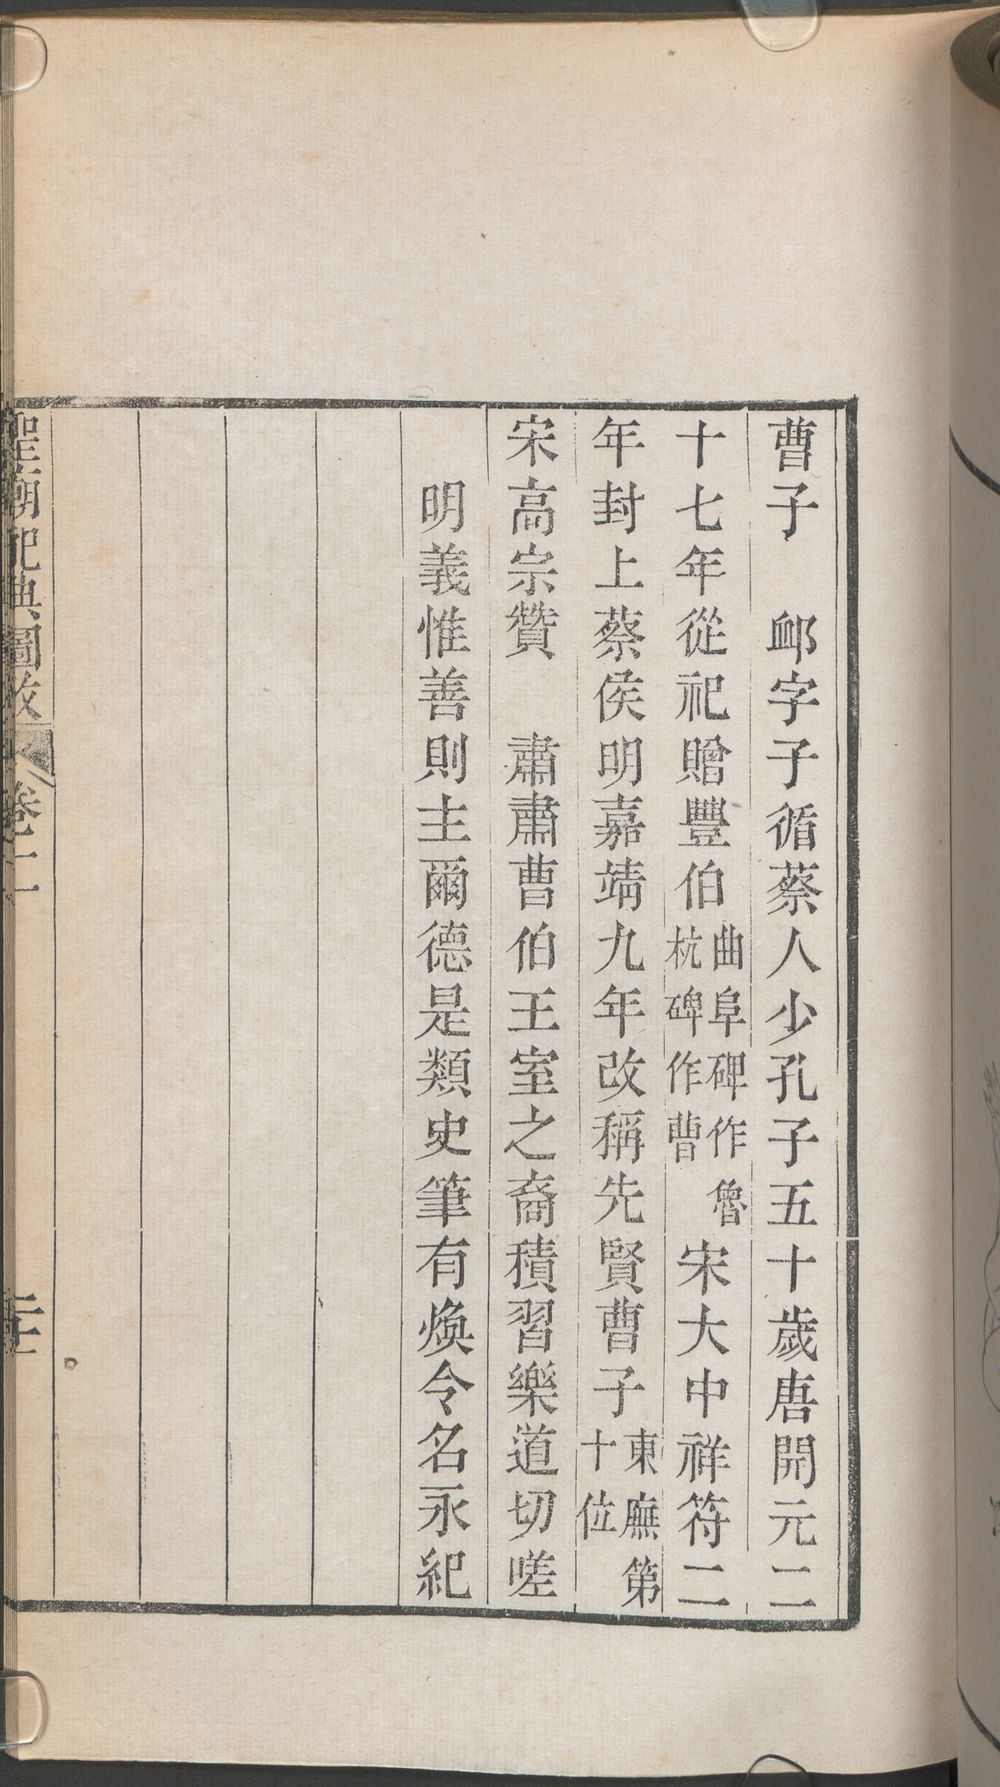 曹子　卹字子循蔡人少孔子五十歲唐開元二
十七年從祀贈豐伯曲阜碑作魯杭碑作曹宋大中祥符二
年封上蔡侯明嘉靖九年改稱先賢曹子東廡第十位
宋高宗贊　肅肅曹伯王室之裔積習樂道切嗟
明義惟善則主爾德是類史筆有煥令名永紀
聖廟祀典圖攷　卷二